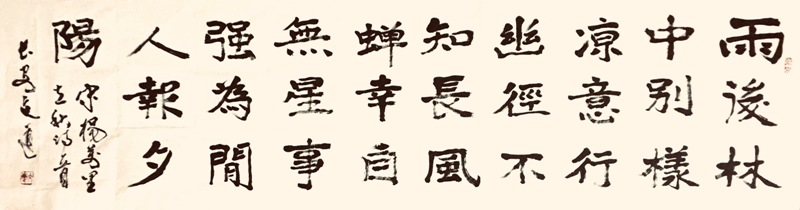 雨後林
中别樣
凉意行
幽徑不
知長風
蝉幸自
無星事
强為閒
人報夕
陽
宋楊萬里
立秋詩